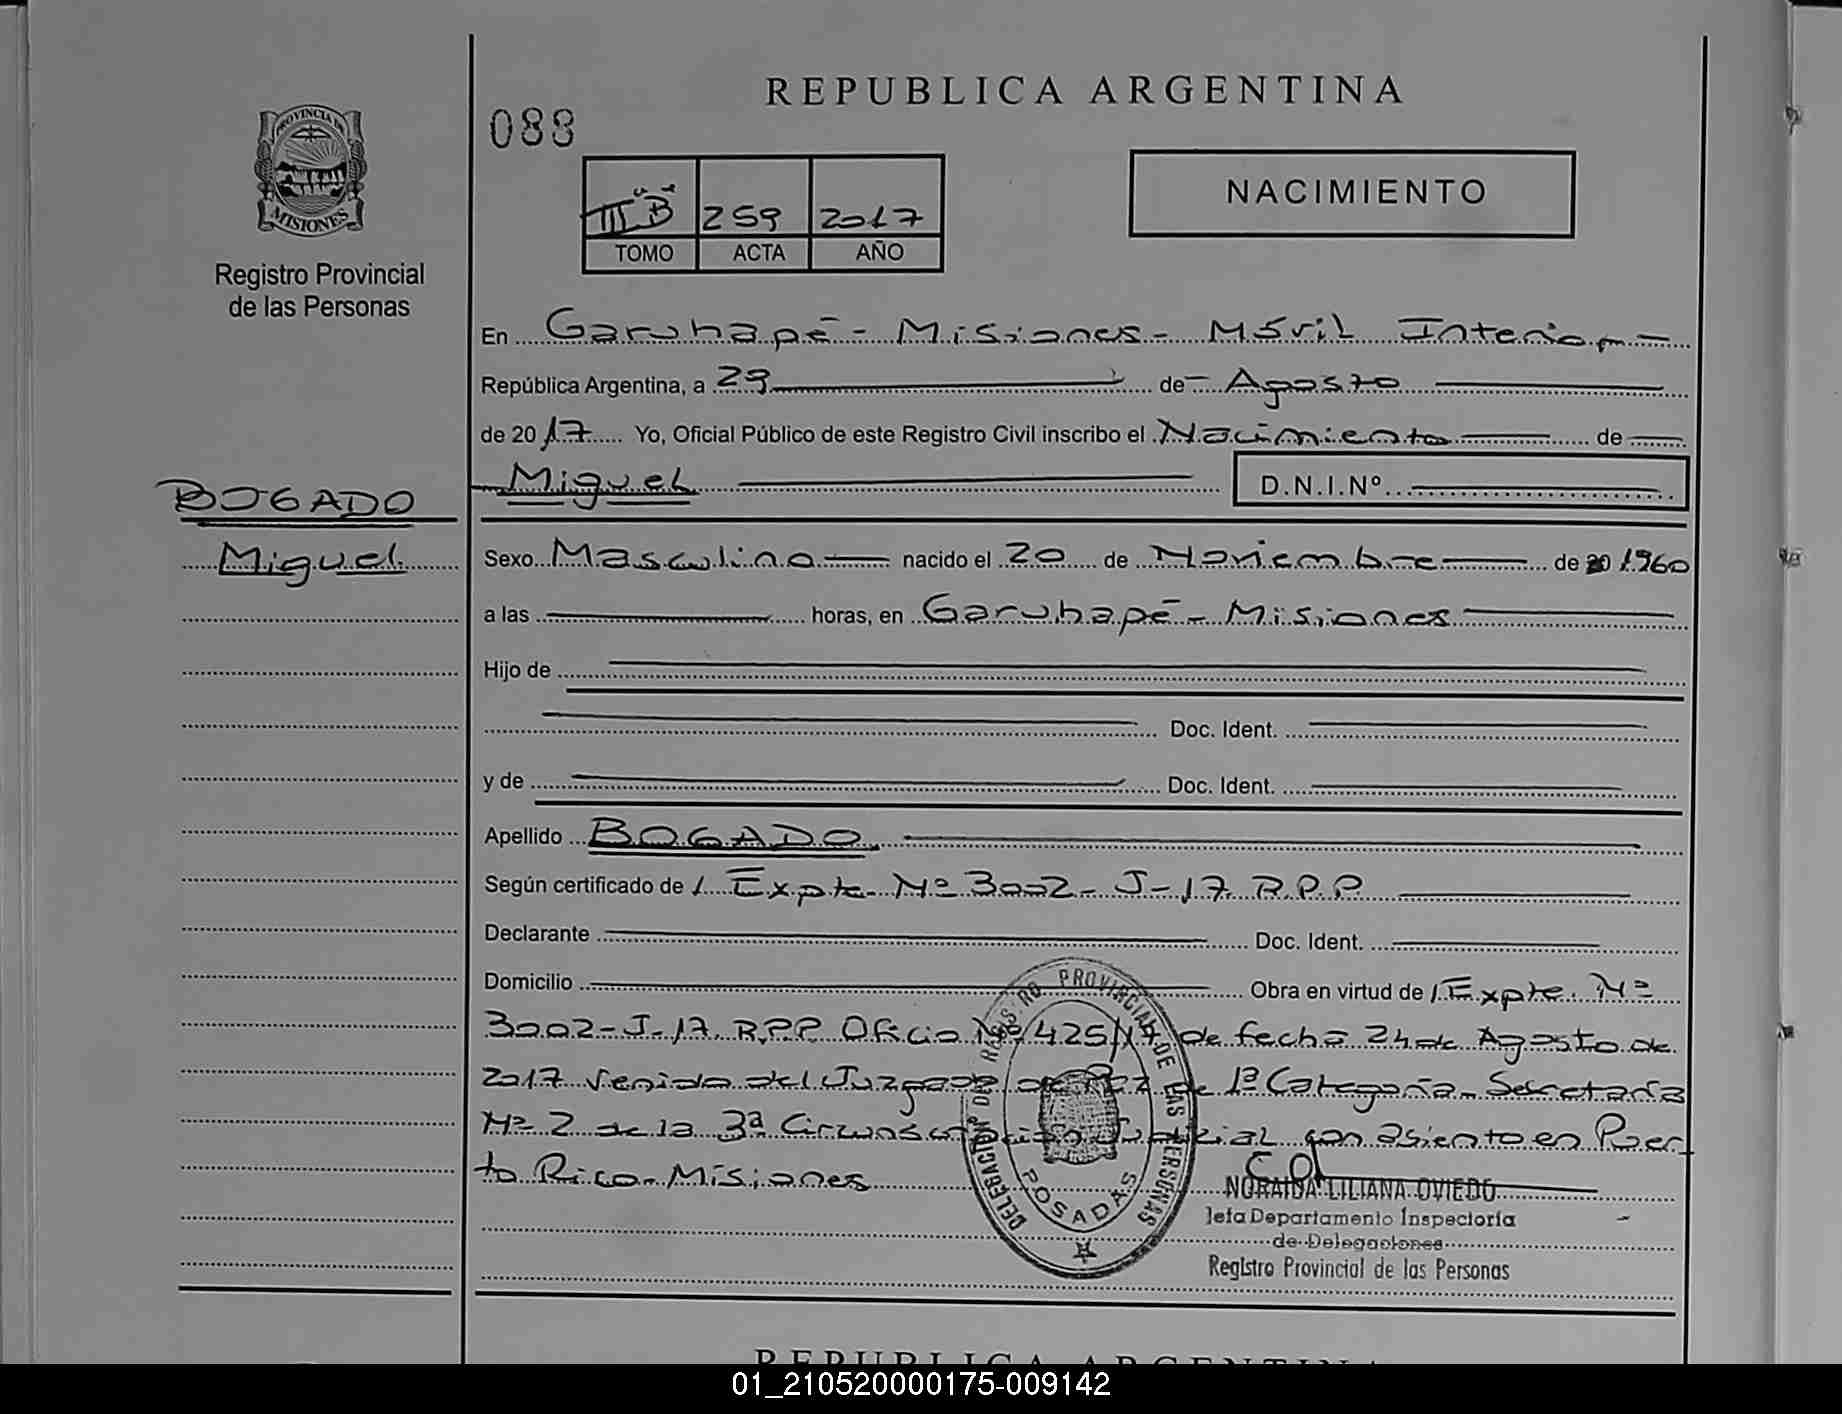 REPUBLICA ARGENTINA
088
NACIMIENTO
III "B" 259 2017
TOMO ACTA AÑO
PROVINCIA DE
MISIONES
Registro Provincial
de las Personas
En Garuhapé - Misiones - Móvil Interior -
República Argentina, a 29 de - Agosto
de 2017 Yo, Oficial Público de este Registro Civil inscribo el Nacimiento de
Miguel D.N.I.Nº
BOGADO
Miguel
Sexo Masculino nacido el 20 de Noviembre de 20 1960
a las horas, en Garuhapé - Misiones
Hijo de
Doc. Ident.
y de Doc. Ident.
Apellido BOGADO
Según certificado de / Expte Nº 3002 - J - 17 R.P.P.
Declarante Doc. Ident.
Domicilio Obra en virtud de / Expte. Nº
3002 - J - 17 R.P.P. Oficio Nº 425/17 de fecha 24 de Agosto de
2017 venido del Juzgado de Paz de 1ª Categoría - Secretaría
Nº 2 de la 3ª Circunscripción Judicial con asiento en Puer
to Rico - Misiones
DELEGACION DEL REGISTRO PROVINCIAL DE LAS PERSONAS
POSADAS
NORAIDA LILIANA OVIEDO
Jefa Departamento Inspectoría
de Delegaciones
Registro Provincial de las Personas
REPUBLICA ARGENTINA
01_210520000175-009142